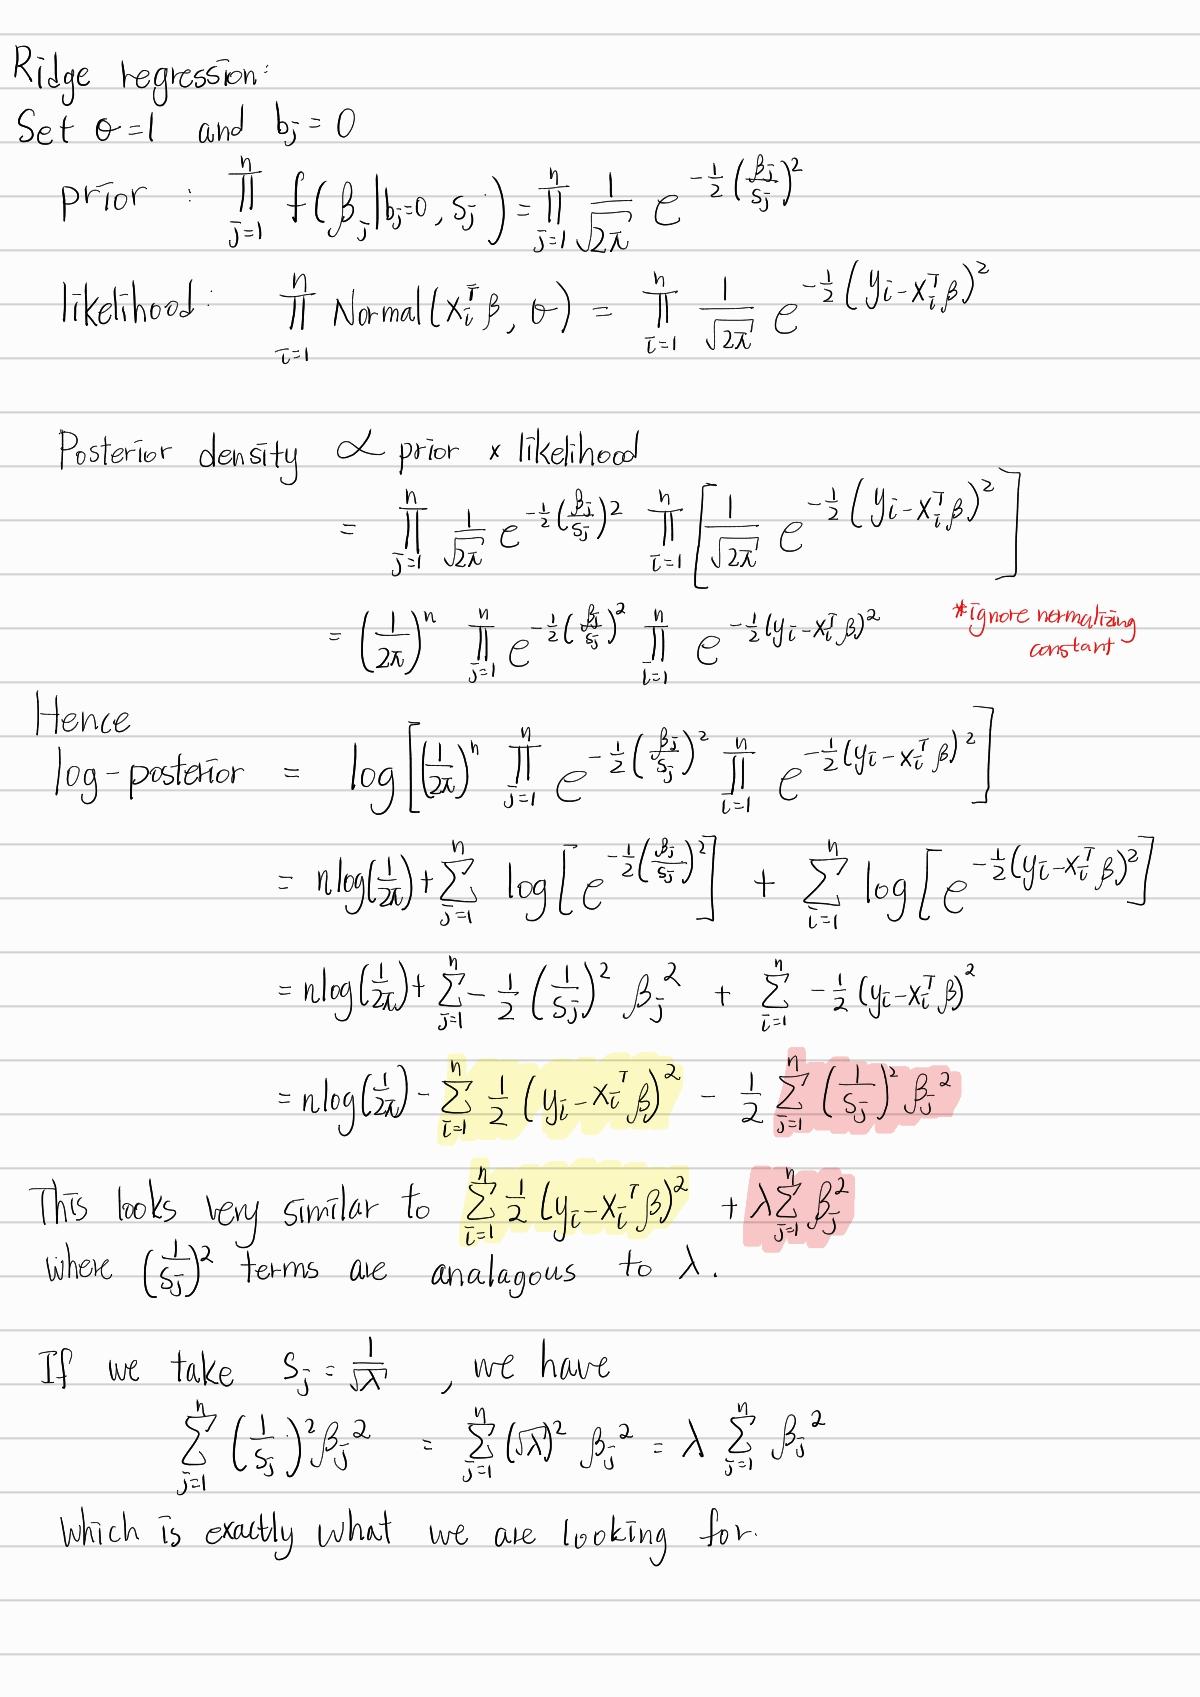 Ridge regression:
Set σ=1 and bj = 0
prior : ∏_{j=1}^{n} f(βj|bj=0, sj) = ∏_{j=1}^{n} 1/√2π e^{-1/2 (βj/sj)^2}
likelihood: ∏_{i=1}^{n} Normal(xi^T β, σ) = ∏_{i=1}^{n} 1/√2π e^{-1/2 (yi-xi^T β)^2}
Posterior density ∝ prior × likelihood
= ∏_{j=1}^{n} 1/√2π e^{-1/2 (βj/sj)^2} ∏_{i=1}^{n} [1/√2π e^{-1/2 (yi-xi^T β)^2}]
= (1/2π)^n ∏_{j=1}^{n} e^{-1/2 (βj/sj)^2} ∏_{i=1}^{n} e^{-1/2 (yi-xi^T β)^2} *ignore normalizing
constant
Hence
log-posterior = log[(1/2π)^n ∏_{j=1}^{n} e^{-1/2 (βj/sj)^2} ∏_{i=1}^{n} e^{-1/2 (yi-xi^T β)^2}]
= nlog(1/2π) + ∑_{j=1}^{n} log[e^{-1/2 (βj/sj)^2}] + ∑_{i=1}^{n} log[e^{-1/2 (yi-xi^T β)^2}]
= nlog(1/2π) + ∑_{j=1}^{n} - 1/2 (1/sj)^2 βj^2 + ∑_{i=1}^{n} -1/2 (yi-xi^T β)^2
= nlog(1/2π) - ∑_{i=1}^{n} 1/2 (yi-xi^T β)^2 - 1/2 ∑_{j=1}^{n} (1/sj)^2 βj^2
This looks very similar to ∑_{i=1}^{n} 1/2 (yi-xi^T β)^2 + λ∑_{j=1}^{n} βj^2
where (1/sj)^2 terms are analagous to λ.
If we take sj = 1/√λ , we have
∑_{j=1}^{n} (1/sj)^2 βj^2 = ∑_{j=1}^{n} (√λ)^2 βj^2 = λ ∑_{j=1}^{n} βj^2
which is exactly what we are looking for.